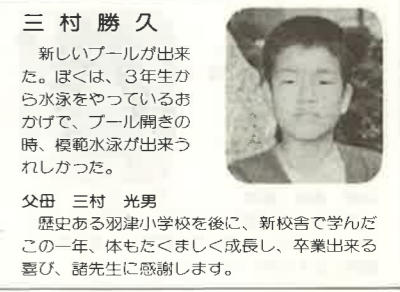 三村勝久
新しいプールが出来
た。ぼくは、3年生か
ら水泳をやっているお
かげで、プール開きの
時、模範水泳が出来う
れしかった。
父母 三村 光男
歴史ある羽津小学校を後に、新校舎で学んだ
この一年、体もたくましく成長し、卒業出来る
喜び、諸先生に感謝します。